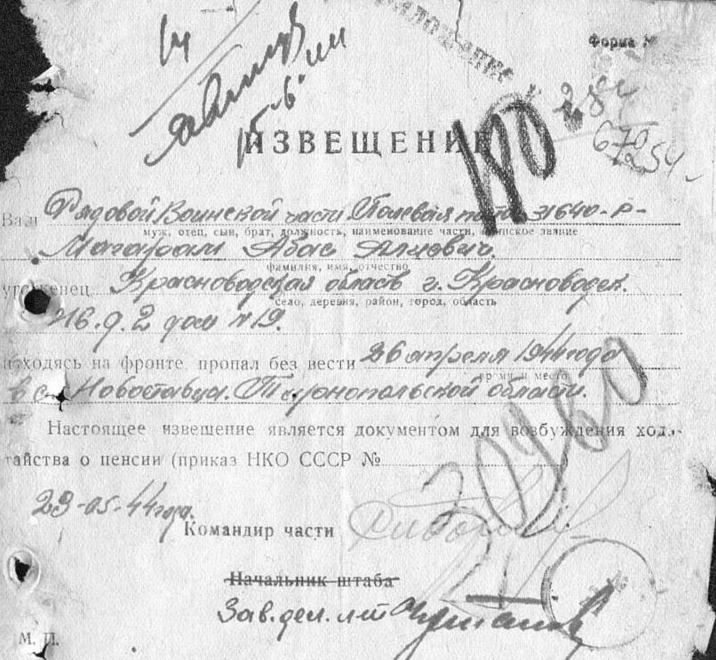 14
15-6-44
Приложение
Форма №
180
ИЗВЕЩЕНИЕ
670
1254
Рядовой Воинской части Полевая почта 31640-Р-
муж, отец, сын, брат, должность, наименование части, воинское звание
Магарам Абас Алиевич.
фамилия, имя, отчество
уроженец Красноводская область г. Красноводск.
село, деревня, район, город, область
д. 2 дом № 19.
находясь на фронте пропал без вести 26 апреля 1944 года
время и место
в с. Новоставцы. Тернопольской области.
Настоящее извещение является документом для возбуждения хода-
тайства о пенсии (приказ НКО СССР №
)
20460
23-05-44 года.
Командир части
Начальник штаба
Зав. дел.
М. П.